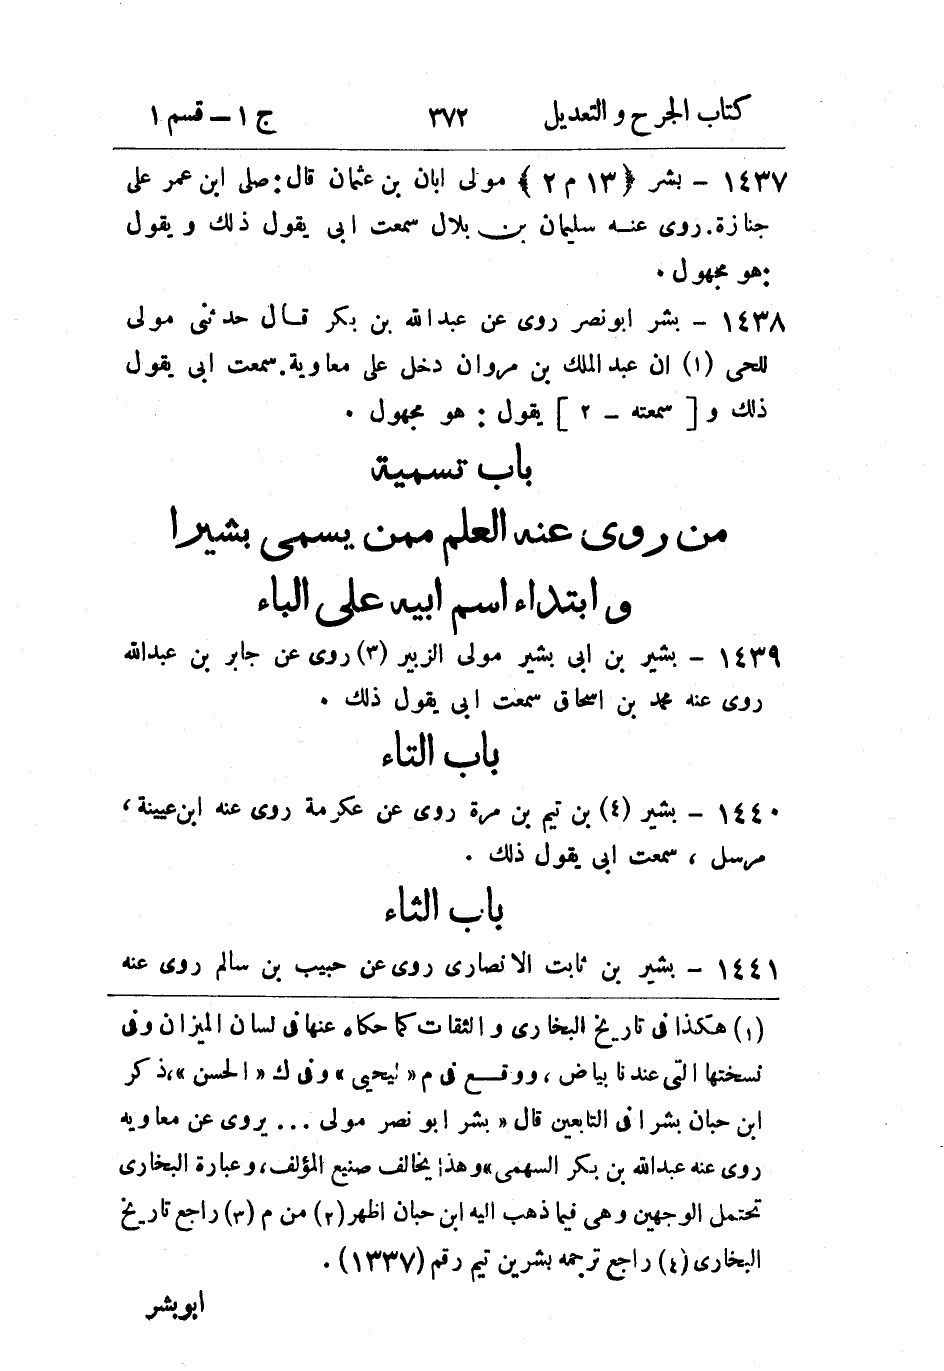 كتاب الجرح والتعديل ٣٧٢ ج ١ – قسم ١
١٤٣٧ – بشر ﴿ ١٣ م ٢ ﴾ مولى ابان بن عثمان قال : صلى ابن عمر على
جنازة . روى عنه سليمان بن بلال سمعت ابى يقول ذلك ويقول
: هو مجهول .
١٤٣٨ – بشر ابونصر روى عن عبد الله بن بكر قال حدثنى مولى
للحى (١) ان عبد الملك بن مروان دخل على معاوية . سمعت ابى يقول
ذلك و [ سمعته – ٢ ] يقول : هو مجهول .
باب تسمية
من روى عنه العلم ممن يسمى بشيرا
و ابتداء اسم ابيه على الباء
١٤٣٩ – بشير بن ابى بشير مولى الزبير (٣) روى عن جابر بن عبد الله
روى عنه محمد بن اسحاق سمعت ابى يقول ذلك .
باب التاء
١٤٤٠ – بشير (٤) بن تيم بن مرة روى عن عكرمة روى عنه ابن عيينة ،
مرسل ، سمعت ابى يقول ذلك .
باب الثاء
١٤٤١ – بشير بن ثابت الانصارى روى عن حبيب بن سالم روى عنه
(١) هكذا فى تاريخ البخارى والثقات كما حكاه عنها فى لسان الميزان وفى
نسختها التى عندنا بياض ، ووقع فى م « ليحيى » وفى ك « الحسن » ، ذكر
ابن حبان بشرا فى التابعين قال « بشر ابو نصر مولى ... يروى عن معاويه
روى عنه عبدالله بن بكر السهمى » وهذا يخالف صنيع المؤلف ، وعبارة البخارى
تحتمل الوجهين وهى فيما ذهب اليه ابن حبان اظهر (٢) من م (٣) راجع تاريخ
البخارى (٤) راجع ترجمه بشر بن تيم رقم (١٣٣٧) .
ابوبشر